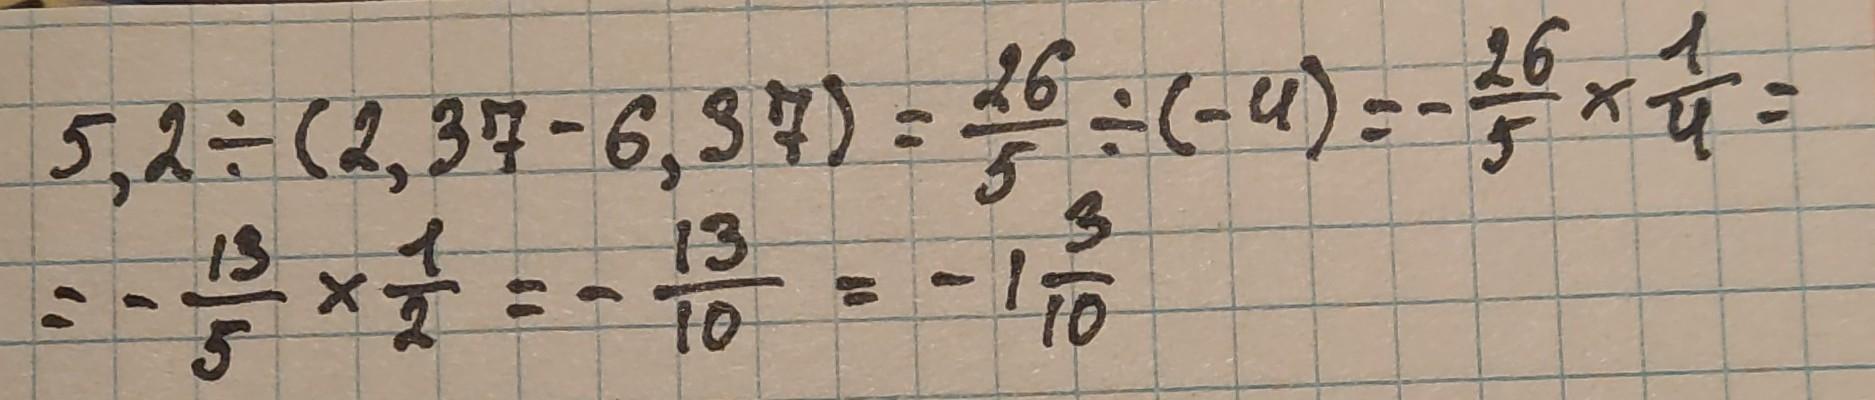 5,2 ÷ (2,37 - 6,37) = 26/5 ÷ (-4) = - 26/5 × 1/4 =
= - 13/5 × 1/2 = - 13/10 = - 1 3/10